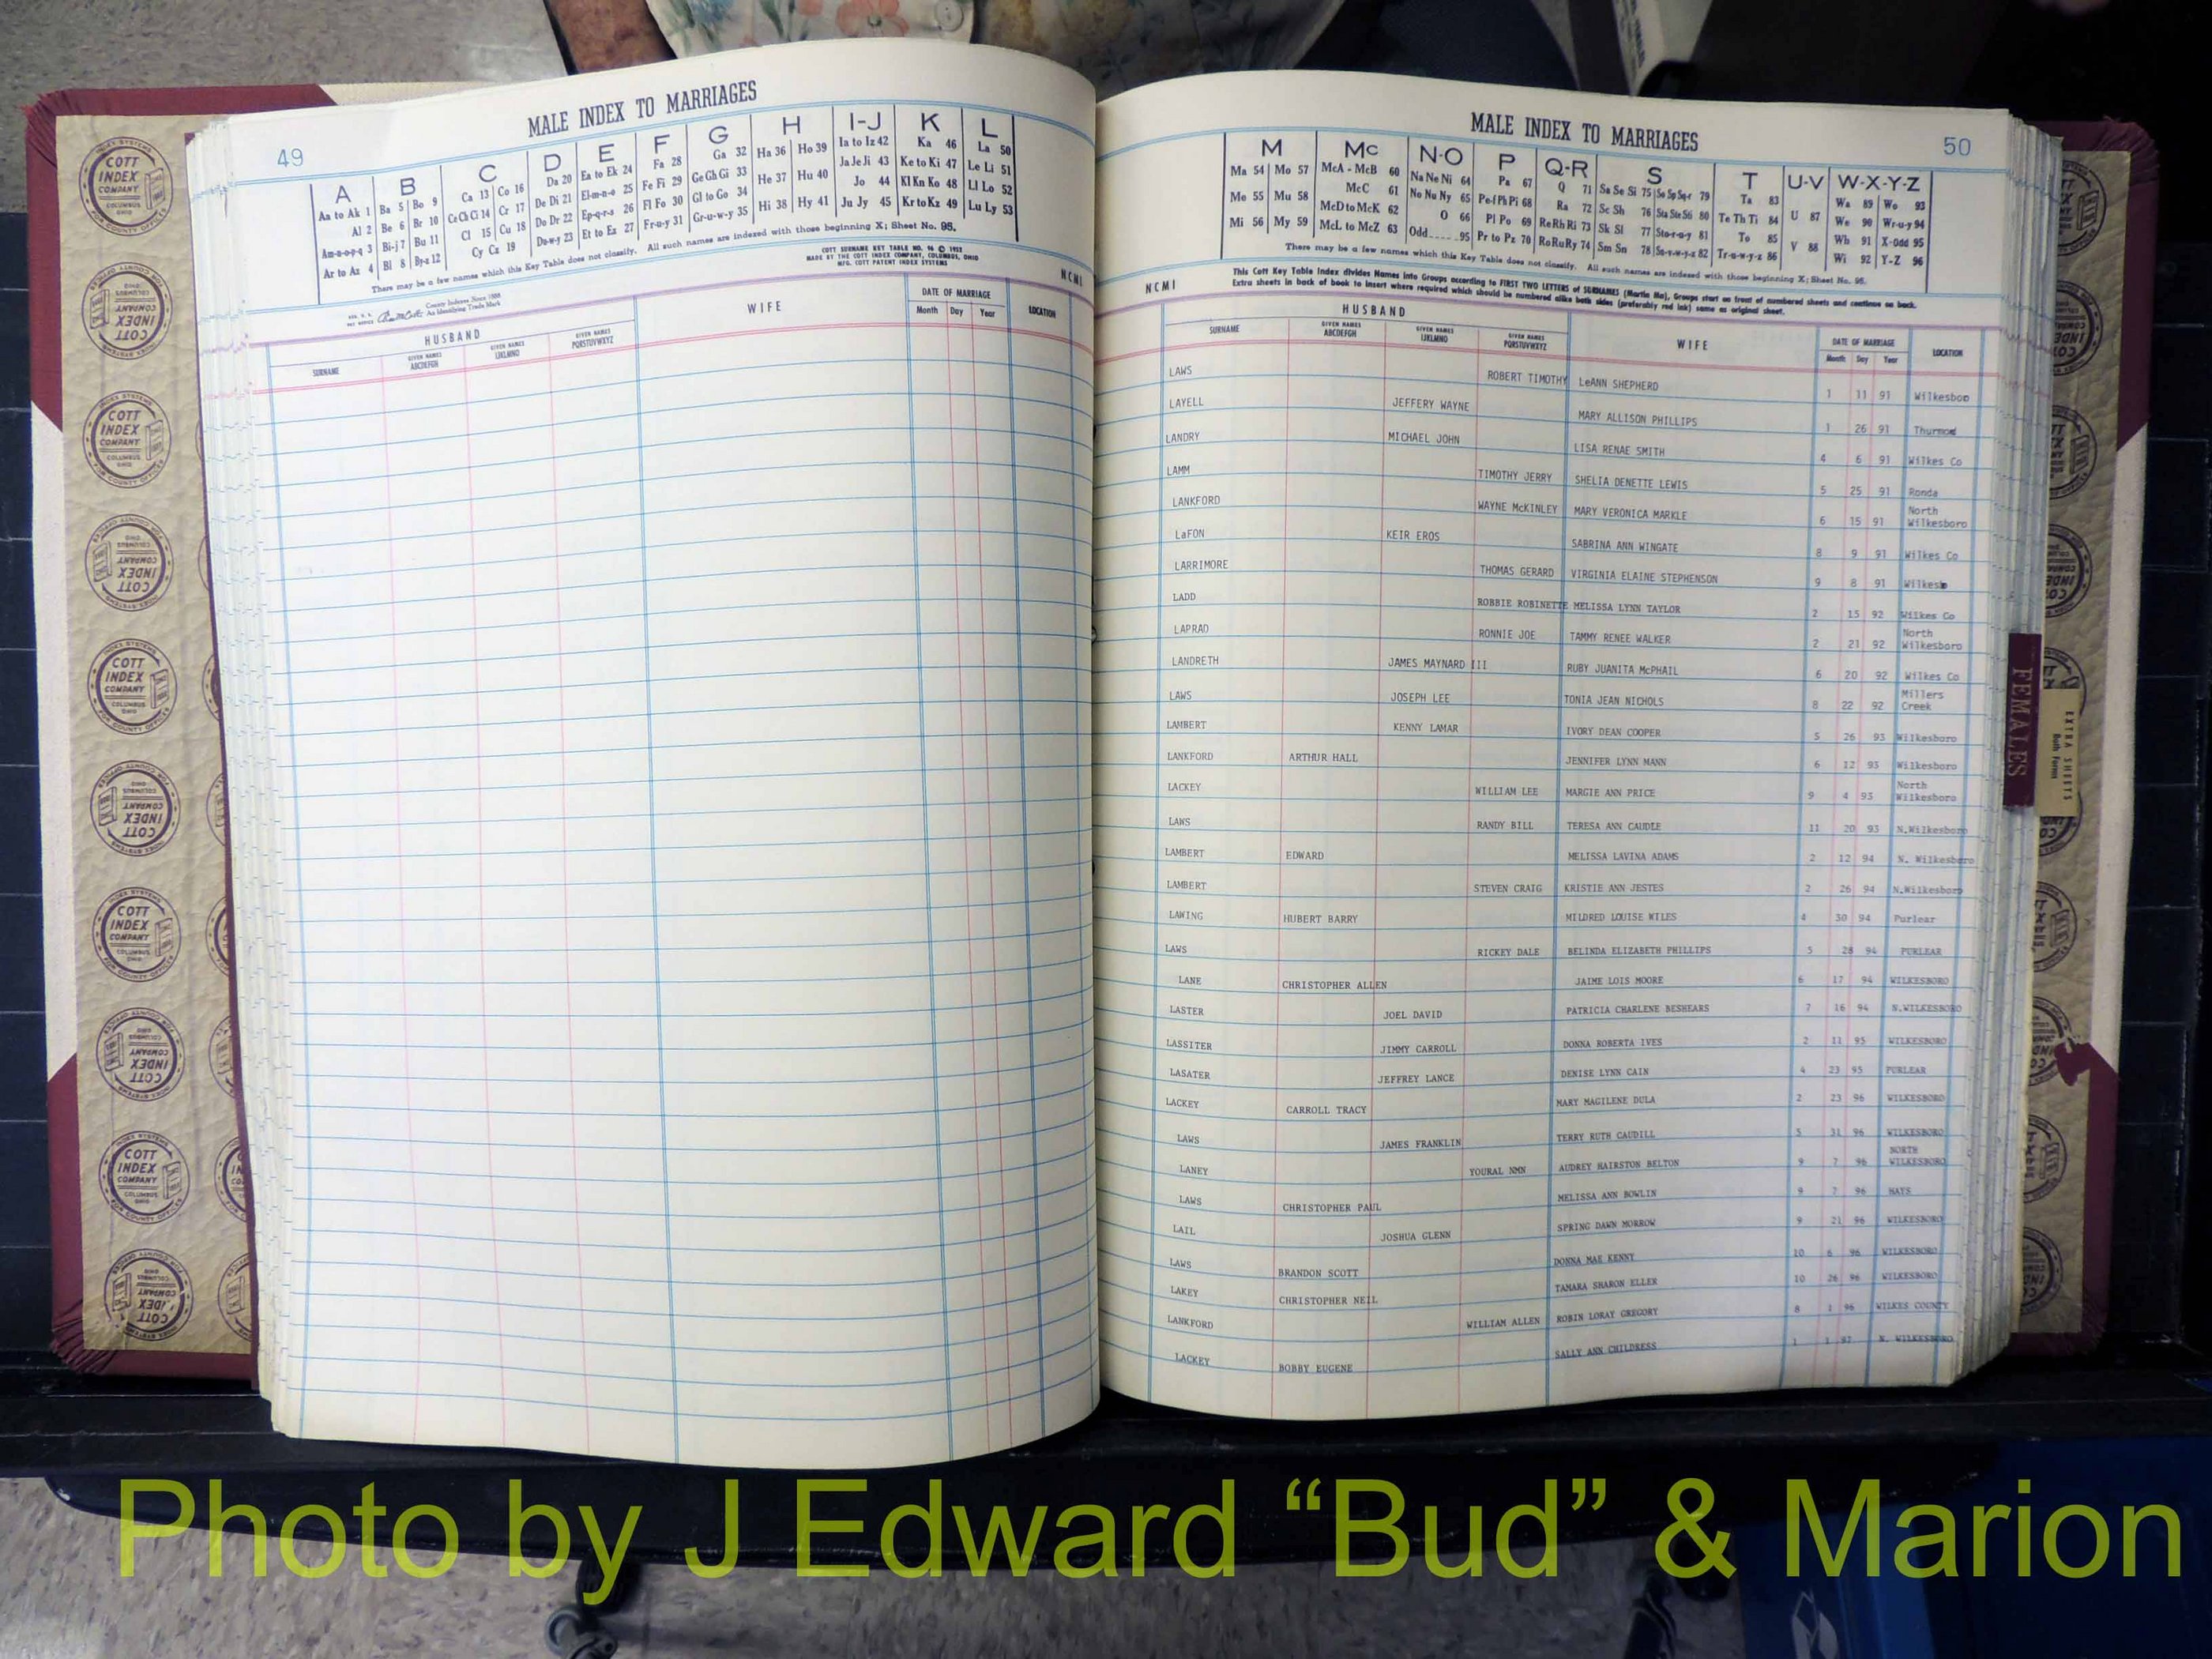 49
MALE INDEX TO MARRIAGES
A B C D E F G H I-J K L
Aa to Ak 1 Ba 5 Bo 9 Ca 13 Co 16 Da 20 Ea to Ek 24 Fa 28 Ga 32 Ha 36 Ho 39 Ia to Iz 42 Ka 46 La 50
Al 2 Be 6 Br 10 Ce Ch Ci 14 Cr 17 De Di 21 El-m-n-o 25 Fe Fi 29 Ge Gh Gi 33 He 37 Hu 40 Ja Je Ji 43 Ke to Ki 47 Le Li 51
Am-n-o-p-q 3 Bi-j 7 Bu 11 Cl 15 Cu 18 Do Dr 22 Ep-q-r-s 26 Fl Fo 30 Gl to Go 34 Hi 38 Hy 41 Jo 44 Kl Kn Ko 48 Ll Lo 52
Ar to Az 4 Bl 8 By-z 12 Cy Cz 19 Du-w-y 23 Et to Ez 27 Fr-u-y 31 Gr-u-w-y 35 Ju Jy 45 Kr to Kz 49 Lu Ly 53
There may be a few names which this Key Table does not classify. All such names are indexed with those beginning X; Sheet No. 95.
COTT SURNAME KEY TABLE NO. 96 © 1952
MADE BY THE COTT INDEX COMPANY, COLUMBUS, OHIO
MFG. COTT PATENT INDEX SYSTEMS
NCMI
County Indexes Since 1888
An Identifying Trade Mark
HUSBAND WIFE DATE OF MARRIAGE LOCATION
SURNAME GIVEN NAMES ABCDEFGH GIVEN NAMES IJKLMNO GIVEN NAMES PQRSTUVWXYZ Month Day Year
MALE INDEX TO MARRIAGES
50
M Mc N-O P Q-R S T U-V W-X-Y-Z
Ma 54 Mo 57 McA - McB 60 Na Ne Ni 64 Pa 67 Q 71 Sa Se Si 75 So Sp Sq-r 79 Ta 83 Wa 89 Wo 93
Me 55 Mu 58 McC 61 No Nu Ny 65 Pe-f Ph Pi 68 Ra 72 Sc Sh 76 Sta Ste Sti 80 Te Th Ti 84 U 87 We 90 Wr-u-y 94
Mi 56 My 59 McD to McK 62 O 66 Pl Po 69 Re Rh Ri 73 Sk Sl 77 Sto-r-u-y 81 To 85 V 88 Wh 91 X-odd 95
McL to McZ 63 Odd 95 Pr to Pz 70 Ro Ru Ry 74 Sm Sn 78 Su-v-w-y-z 82 Tr-u-w-y-z 86 Wi 92 Y-Z 96
There may be a few names which this Key Table does not classify. All such names are indexed with those beginning X; Sheet No. 95.
NCMI
This Cott Key Table Index divides Names into Groups according to FIRST TWO LETTERS of SURNAMES (Martin Ma), Groups start on front of numbered sheets and continue on back.
Extra sheets in back of book to insert where required which should be numbered alike both sides (preferably red ink) same as original sheet.
HUSBAND WIFE DATE OF MARRIAGE LOCATION
SURNAME GIVEN NAMES ABCDEFGH GIVEN NAMES IJKLMNO GIVEN NAMES PQRSTUVWXYZ Month Day Year
LAWS ROBERT TIMOTHY LeANN SHEPHERD 1 11 91 Wilkesboo
LAYELL JEFFERY WAYNE MARY ALLISON PHILLIPS 1 26 91 Thurmod
LANDRY MICHAEL JOHN LISA RENAE SMITH 4 6 91 Wilkes Co
LAMM TIMOTHY JERRY SHELIA DENETTE LEWIS 5 25 91 Ronda
LANKFORD WAYNE McKINLEY MARY VERONICA MARKLE 6 15 91 North Wilkesboro
LaFON KEIR EROS SABRINA ANN WINGATE 8 9 91 Wilkes Co
LARRIMORE THOMAS GERARD VIRGINIA ELAINE STEPHENSON 9 8 91
LADD ROBBIE ROBINETTE MELISSA LYNN TAYLOR 2 15 92 Wilkes Co
LAPRAD RONNIE JOE TAMMY RENEE WALKER 2 21 92 North Wilkesboro
LANDRETH JAMES MAYNARD III RUBY JUANITA McPHAIL 6 20 92 Wilkes Co
LAWS JOSEPH LEE TONIA JEAN NICHOLS 8 22 92 Millers Creek
LAMBERT KENNY LAMAR IVORY DEAN COOPER 5 26 93 Wilkesboro
LANKFORD ARTHUR HALL JENNIFER LYNN MANN 6 12 93 Wilkesboro
LACKEY WILLIAM LEE MARGIE ANN PRICE 9 4 93 North Wilkesboro
LAWS RANDY BILL TERESA ANN CAUDLE 11 20 93 N.Wilkesboro
LAMBERT EDWARD MELISSA LAVINA ADAMS 2 12 94 N. Wilkesboro
LAMBERT STEVEN CRAIG KRISTIE ANN JESTES 2 26 94 N.Wilkesboro
LAWING HUBERT BARRY MILDRED LOUISE WILES 4 30 94 Purlear
LAWS RICKEY DALE BELINDA ELIZABETH PHILLIPS 5 28 94 PURLEAR
LANE CHRISTOPHER ALLEN JAIME LOIS MOORE 6 17 94 WILKESBORO
LASTER JOEL DAVID PATRICIA CHARLENE BESHEARS 7 16 94 N.WILKESBORO
LASSITER JIMMY CARROLL DONNA ROBERTA IVES 2 11 95 WILKESBORO
LASATER JEFFREY LANCE DENISE LYNN CAIN 4 23 95 PURLEAR
LACKEY CARROLL TRACY MARY MAGILENE DULA 2 23 96 WILKESBORO
LAWS JAMES FRANKLIN TERRY RUTH CAUDILL 5 31 96 WILKESBORO
LANEY YOURAL NMN AUDREY HAIRSTON BELTON 9 7 96 NORTH WILKESBORO
LAWS CHRISTOPHER PAUL MELISSA ANN BOWLIN 9 7 96 HAYS
LAIL JOSHUA GLENN SPRING DAWN MORROW 9 21 96 WILKESBORO
LAWS BRANDON SCOTT DONNA MAE KENNY 10 6 96 WILKESBORO
LAKEY CHRISTOPHER NEIL TAMARA SHARON ELLER 10 26 96 WILKESBORO
LANKFORD WILLIAM ALLEN ROBIN LORAY GREGORY 8 1 96 WILKES COUNTY
LACKEY BOBBY EUGENE SALLY ANN CHILDRESS 1 1 97 N. WILKESBORO
FEMALES
EXTRA SHEETS
Both Forms
COTT INDEX COMPANY
COLUMBUS OHIO
INDEX SYSTEMS
FOR COUNTY OFFICES
Photo by J Edward “Bud” & Marion